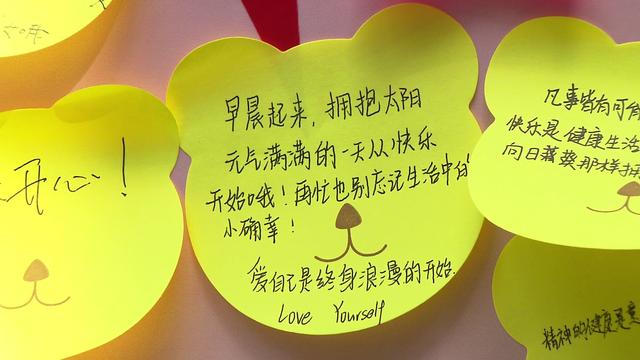 开心！
早晨起来，拥抱太阳
元气满满的一天从快乐
开始哦！再忙也别忘记生活中的
小确幸！
爱自己是终身浪漫的开始.
Love Yourself
凡事皆有可
快乐是健康生活
向日葵那样
精神的健康是